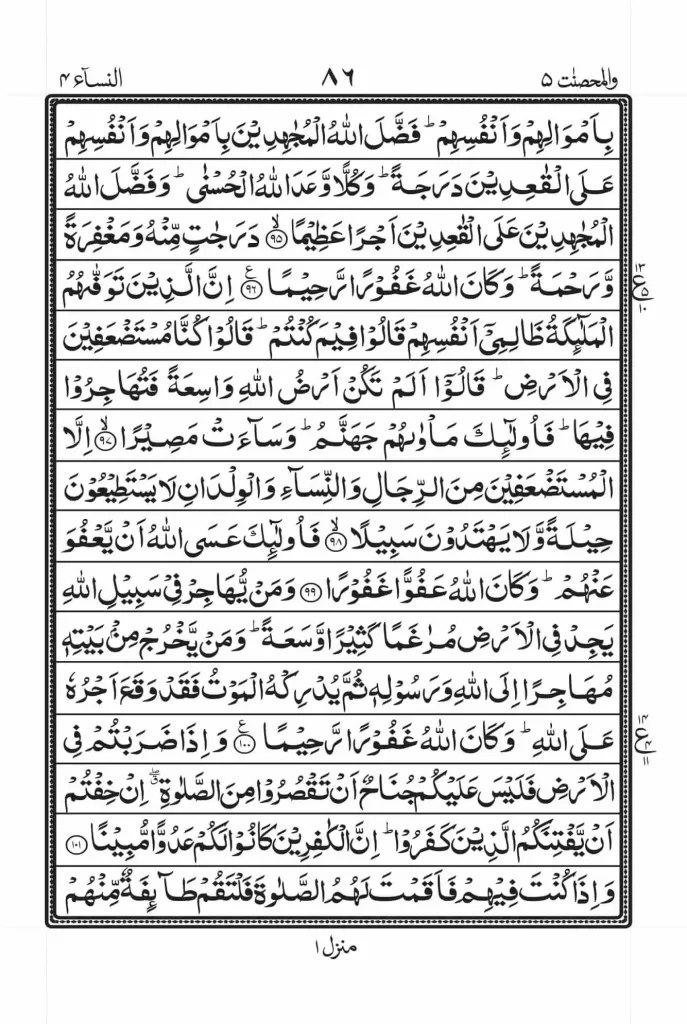 والمحصنٰت ۵ ۸۶ النسآء ۴
بِاَمْوَالِهِمْ وَاَنْفُسِهِمْ ؕ فَضَّلَ اللّٰهُ الْمُجٰهِدِيْنَ بِاَمْوَالِهِمْ وَاَنْفُسِهِمْ
عَلَى الْقٰعِدِيْنَ دَرَجَةً ؕ وَكُلًّا وَّعَدَ اللّٰهُ الْحُسْنٰى ؕ وَفَضَّلَ اللّٰهُ
الْمُجٰهِدِيْنَ عَلَى الْقٰعِدِيْنَ اَجْرًا عَظِيْمًا ۙ﴿۹۵﴾ دَرَجٰتٍ مِّنْهُ وَمَغْفِرَةً
وَّرَحْمَةً ؕ وَكَانَ اللّٰهُ غَفُوْرًا رَّحِيْمًا ﴿۹۶﴾ع اِنَّ الَّذِيْنَ تَوَفّٰىهُمُ
۱۳ ع ۵ ۱۰
الْمَلٰٓئِكَةُ ظَالِمِيْٓ اَنْفُسِهِمْ قَالُوْا فِيْمَ كُنْتُمْ ؕ قَالُوْا كُنَّا مُسْتَضْعَفِيْنَ
فِى الْاَرْضِ ؕ قَالُوْٓا اَلَمْ تَكُنْ اَرْضُ اللّٰهِ وَاسِعَةً فَتُهَاجِرُوْا
فِيْهَا ؕ فَاُولٰٓئِكَ مَاْوٰىهُمْ جَهَنَّمُ ؕ وَسَآءَتْ مَصِيْرًا ۙ﴿۹۷﴾ اِلَّا
الْمُسْتَضْعَفِيْنَ مِنَ الرِّجَالِ وَالنِّسَآءِ وَالْوِلْدَانِ لَا يَسْتَطِيْعُوْنَ
حِيْلَةً وَّلَا يَهْتَدُوْنَ سَبِيْلًا ۙ﴿۹۸﴾ فَاُولٰٓئِكَ عَسَى اللّٰهُ اَنْ يَّعْفُوَ
عَنْهُمْ ؕ وَكَانَ اللّٰهُ عَفُوًّا غَفُوْرًا ﴿۹۹﴾ وَمَنْ يُّهَاجِرْ فِيْ سَبِيْلِ اللّٰهِ
يَجِدْ فِى الْاَرْضِ مُرٰغَمًا كَثِيْرًا وَّسَعَةً ؕ وَمَنْ يَّخْرُجْ مِنْۢ بَيْتِهٖ
مُهَاجِرًا اِلَى اللّٰهِ وَرَسُوْلِهٖ ثُمَّ يُدْرِكْهُ الْمَوْتُ فَقَدْ وَقَعَ اَجْرُهٗ
عَلَى اللّٰهِ ؕ وَكَانَ اللّٰهُ غَفُوْرًا رَّحِيْمًا ﴿۱۰۰﴾ع وَاِذَا ضَرَبْتُمْ فِى
۱۴ ع ۴ ۱۱
الْاَرْضِ فَلَيْسَ عَلَيْكُمْ جُنَاحٌ اَنْ تَقْصُرُوْا مِنَ الصَّلٰوةِ ۖ اِنْ خِفْتُمْ
اَنْ يَّفْتِنَكُمُ الَّذِيْنَ كَفَرُوْا ؕ اِنَّ الْكٰفِرِيْنَ كَانُوْا لَكُمْ عَدُوًّا مُّبِيْنًا ﴿۱۰۱﴾
وَاِذَا كُنْتَ فِيْهِمْ فَاَقَمْتَ لَهُمُ الصَّلٰوةَ فَلْتَقُمْ طَآئِفَةٌ مِّنْهُمْ
منزل ۱